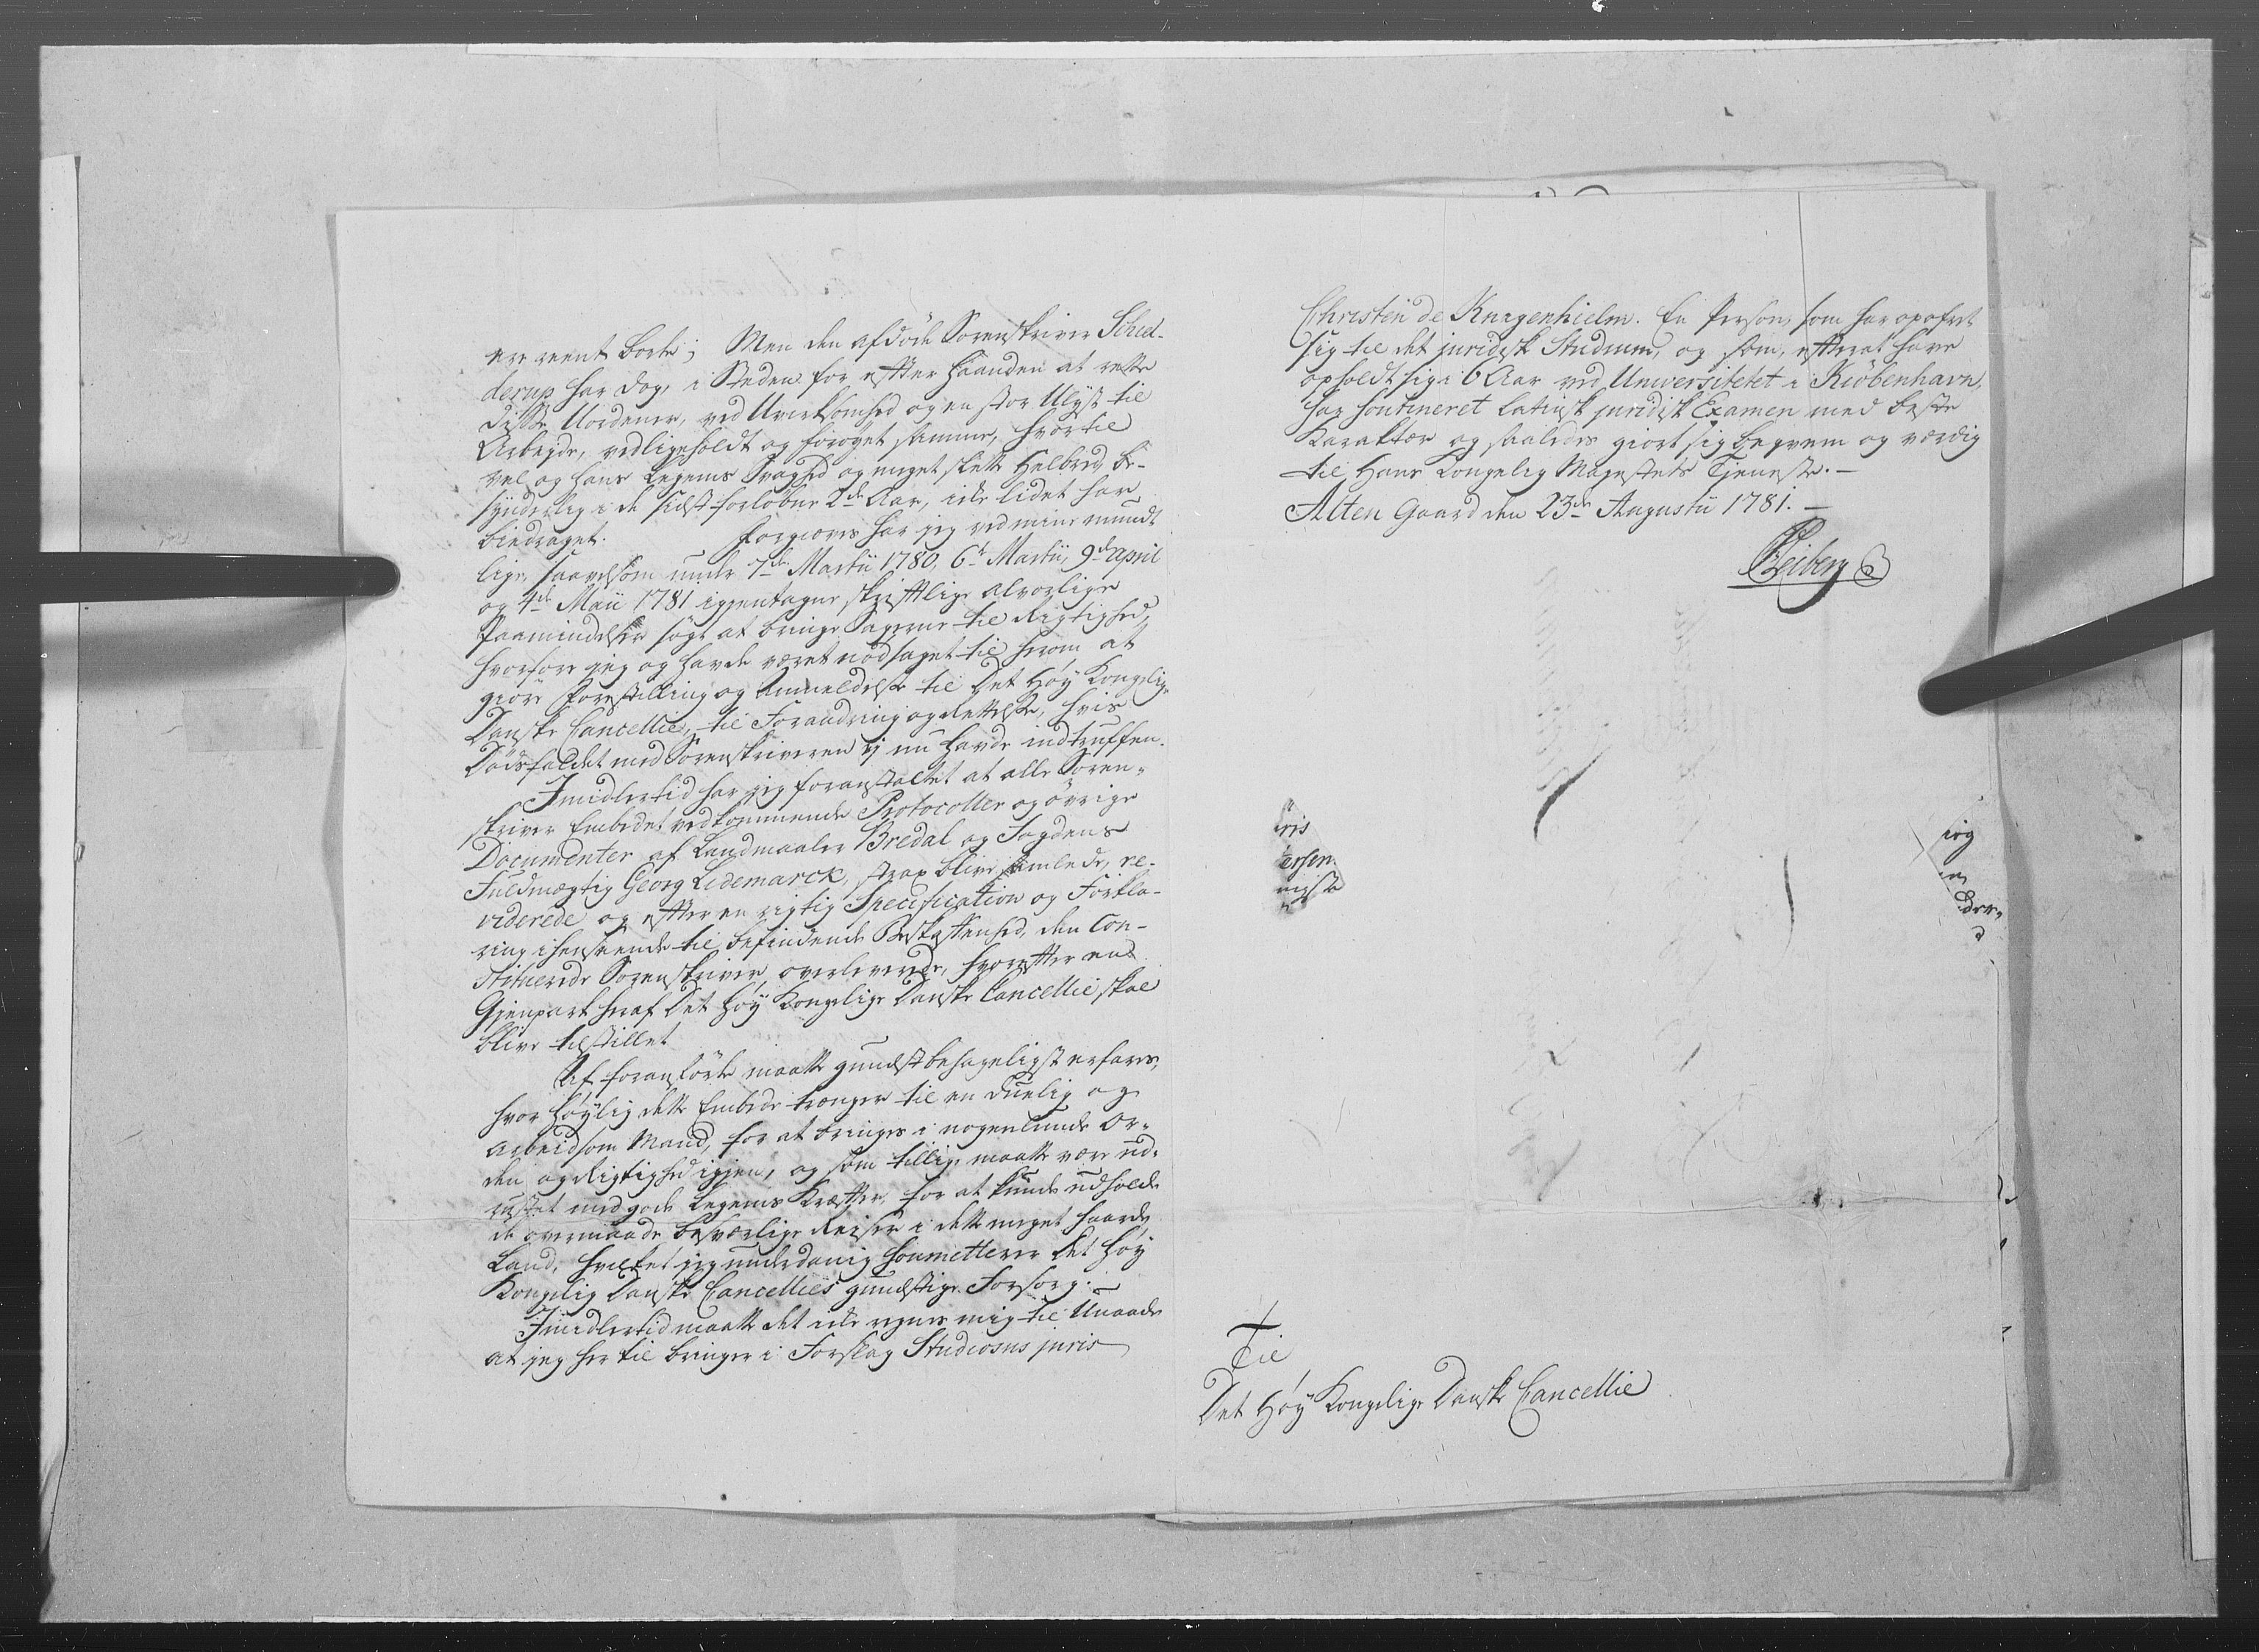 ere reent borte; Men den afdöde Sorenskriver Sched-
derup har dog, i Steden for efter Haanden at rette
disse Uordener, ved Uvirksomhed og en stor Ulyst til
Arbeyde, vedligeholdt og forøget samme, hvortil
vel og hans Legems Svaghed og meget slette Helbred, be-
synderlig i de sidst forløbne 2de Aar, icke lidet har
biedraget. Forgieves har jeg ved mine mundt
lige, saavelsom under 7de Martii 1780, 6te Martii, 9de April
og 4de Maii 1781 igjentagne skriftlige alvorlige
Paamindelser søgt at bringe Sagerne til Rigtighed,
hvorfore jeg og havde været nødsaget til herom at
giöre Forestilling og Anmeldelse til Det Høy Kongelige
Danske Cancellie, til Forandring og Rettelse, hvis
Dödsfaldet med Sorenskriveren ej nu havde indtruffen.
Imidlertid har jeg foranstaltet at alle Soren-
skriver Embedet vedkommende Protocoller og øvrige
Documenter af Landmaaler Bredal og Fogdens
Fuldmægtig Georg Lidemarck, strax blive samlede, re-
viderede og efter en rigtig Specification og Forkla-
ring i henseende til befindende Beskaffenhed, den Con-
stituerede Sorenskriver overleverede, hvorefter en
Gjenpart heraf Det Høy Kongelige Danske Cancellie skal
blive tilstillet
Af foranførte maatte gunstbehageligst erfares,
hvor høylig dette Embede trænger til en duelig og
arbeidsom Mand, for at bringes i nogenlunde Or-
den og Rigtighed igjen, og som tillige maatte være ud-
rustet med gode Legems Kræfter, for at kunde udholde
de overmaade besværlige Reiser i dette meget haarde
Land, hvilket jeg underdanig soumetterer Det Høy
Kongelig Danske Cancellies gunstige Forsorg.-
Imidlertid maatte det icke regnes mig til Unaade
at jeg her til bringer i Forslag Studiosus juris
Christen de Knagenhielm. En Person, som har opofret
sig til det juridisk Studium, og som, efterat have
opholdt sig i 6 Aar ved Universitetet i Kiöbenhavn,
har soutineret Latinsk juridisk Examen med beste
Karakter og saaledes giort sig beqvem og værdig
til Hans Kongelig Majestets Tjeneste.-
Alten Gaard den 23de Augustii 1781.-
Fieberg
Til
Det Høy Kongelige Danske Cancellie